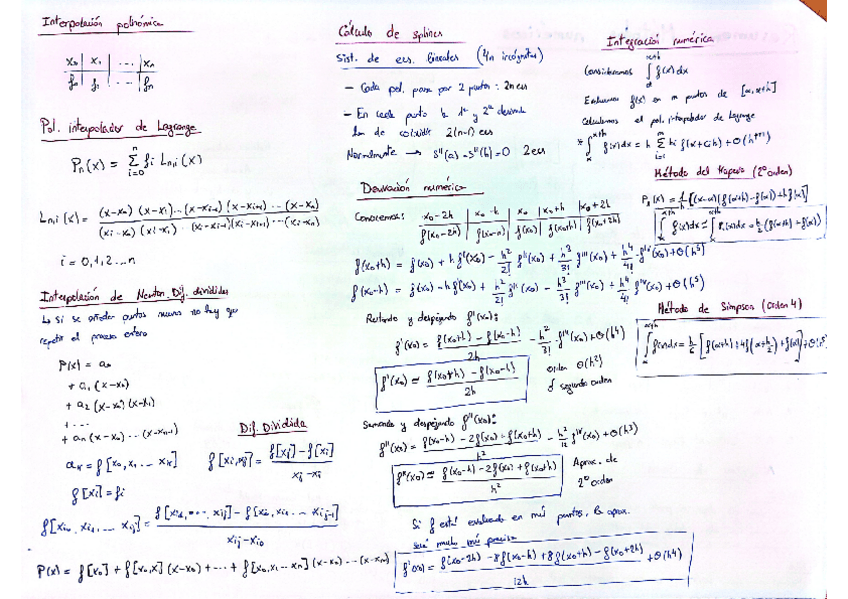 Interpolación polinómica
x₀ | x₁ | ... | xₙ
f₀ | f₁ | ... | fₙ
Pol. interpolador de Lagrange
Pₙ(x) = Σ_{i=0}^{n} fᵢ Lₙ,ᵢ(x)
Lₙ,ᵢ(x) = (x-x₀)(x-x₁)...(x-xᵢ₋₁)(x-xᵢ₊₁)...(x-xₙ) / (xᵢ-x₀)(xᵢ-x₁)...(xᵢ-xᵢ₋₁)(xᵢ-xᵢ₊₁)...(xᵢ-xₙ)
i = 0,1,2...n
Interpolación de Newton. Dif. divididas
↳ Si se añaden puntos nuevos no hay que
repetir el proceso entero
P(x) = a₀
+ a₁(x-x₀)
+ a₂(x-x₀)(x-x₁)
+ ...
+ aₙ(x-x₀)...(x-xₙ₋₁)
aₖ = f[x₀, x₁ ... xₖ]
f[xᵢ] = fᵢ
Dif. Dividida
f[xᵢ,xⱼ] = f[xⱼ] - f[xᵢ] / xⱼ - xᵢ
f[xᵢ₀, xᵢ₁, ... xᵢⱼ] = f[xᵢ₁, ..., xᵢⱼ] - f[xᵢ₀, xᵢ₁ ... xᵢⱼ₋₁] / xᵢⱼ - xᵢ₀
P(x) = f[x₀] + f[x₀,x₁](x-x₀) + ... + f[x₀,x₁...xₙ](x-x₀)...(x-xₙ)
Cálculo de splines
Sist. de ecs. lineales (4n incógnitas)
- Cada pol. pasa por 2 puntos: 2n ecs
- En cada punto la 1ª y 2ª derivada
han de coincidir 2(n-1) ecs
Normalmente → S''(a) = S''(b) = 0 2 ecs
Derivación numérica
Conocemos: x₀-2h | x₀-h | x₀ | x₀+h | x₀+2h
f(x₀-2h) | f(x₀-h) | f(x₀) | f(x₀+h) | f(x₀+2h)
f(x₀+h) = f(x₀) + h f'(x₀) - h²/2! f''(x₀) + h³/3! f'''(x₀) + h⁴/4! f^IV(x₀) + O(h⁵)
f(x₀-h) = f(x₀) - h f'(x₀) + h²/2! f''(x₀) - h³/3! f'''(x₀) + h⁴/4! f^IV(x₀) + O(h⁵)
Restando y despejando f'(x₀):
f'(x₀) = f(x₀+h) - f(x₀-h) / 2h - h²/3! f'''(x₀) + O(h⁴)
f'(x₀) ≈ f(x₀+h) - f(x₀-h) / 2h
orden O(h²)
ó segundo orden
Sumando y despejando f''(x₀):
f''(x₀) = f(x₀-h) - 2f(x₀) + f(x₀+h) / h² - h²/12 f^IV(x₀) + O(h³)
f''(x₀) ≈ f(x₀-h) - 2f(x₀) + f(x₀+h) / h²
Aprox. de
2º orden
Si f está evaluada en más puntos, la aprox.
será mucho más precisa
f'(x₀) = f(x₀-2h) - 8f(x₀-h) + 8f(x₀+h) - f(x₀+2h) / 12h + O(h⁴)
Integración numérica
Consideramos ∫_α^{α+h} f(x)dx
Evaluamos f(x) en m puntos de [α, α+h]
Calculamos el pol. interpolador de Lagrange
* ∫_α^{α+h} f(x)dx = h Σ_{i=1}^{m} bᵢ f(α+cᵢh) + O(h^{p+1})
Método del trapecio (2º orden)
P₁(x) = 1/h [(x-α)(f(α+h) - f(α)) + h f(α)]
∫_α^{α+h} f(x)dx ≈ ∫_α^{α+h} P₁(x)dx = h/2 (f(α+h) + f(α))
Método de Simpson (orden 4)
∫_α^{α+h} f(x)dx = h/6 [f(α+h) + 4f(α+h/2) + f(α)] + O(h⁵